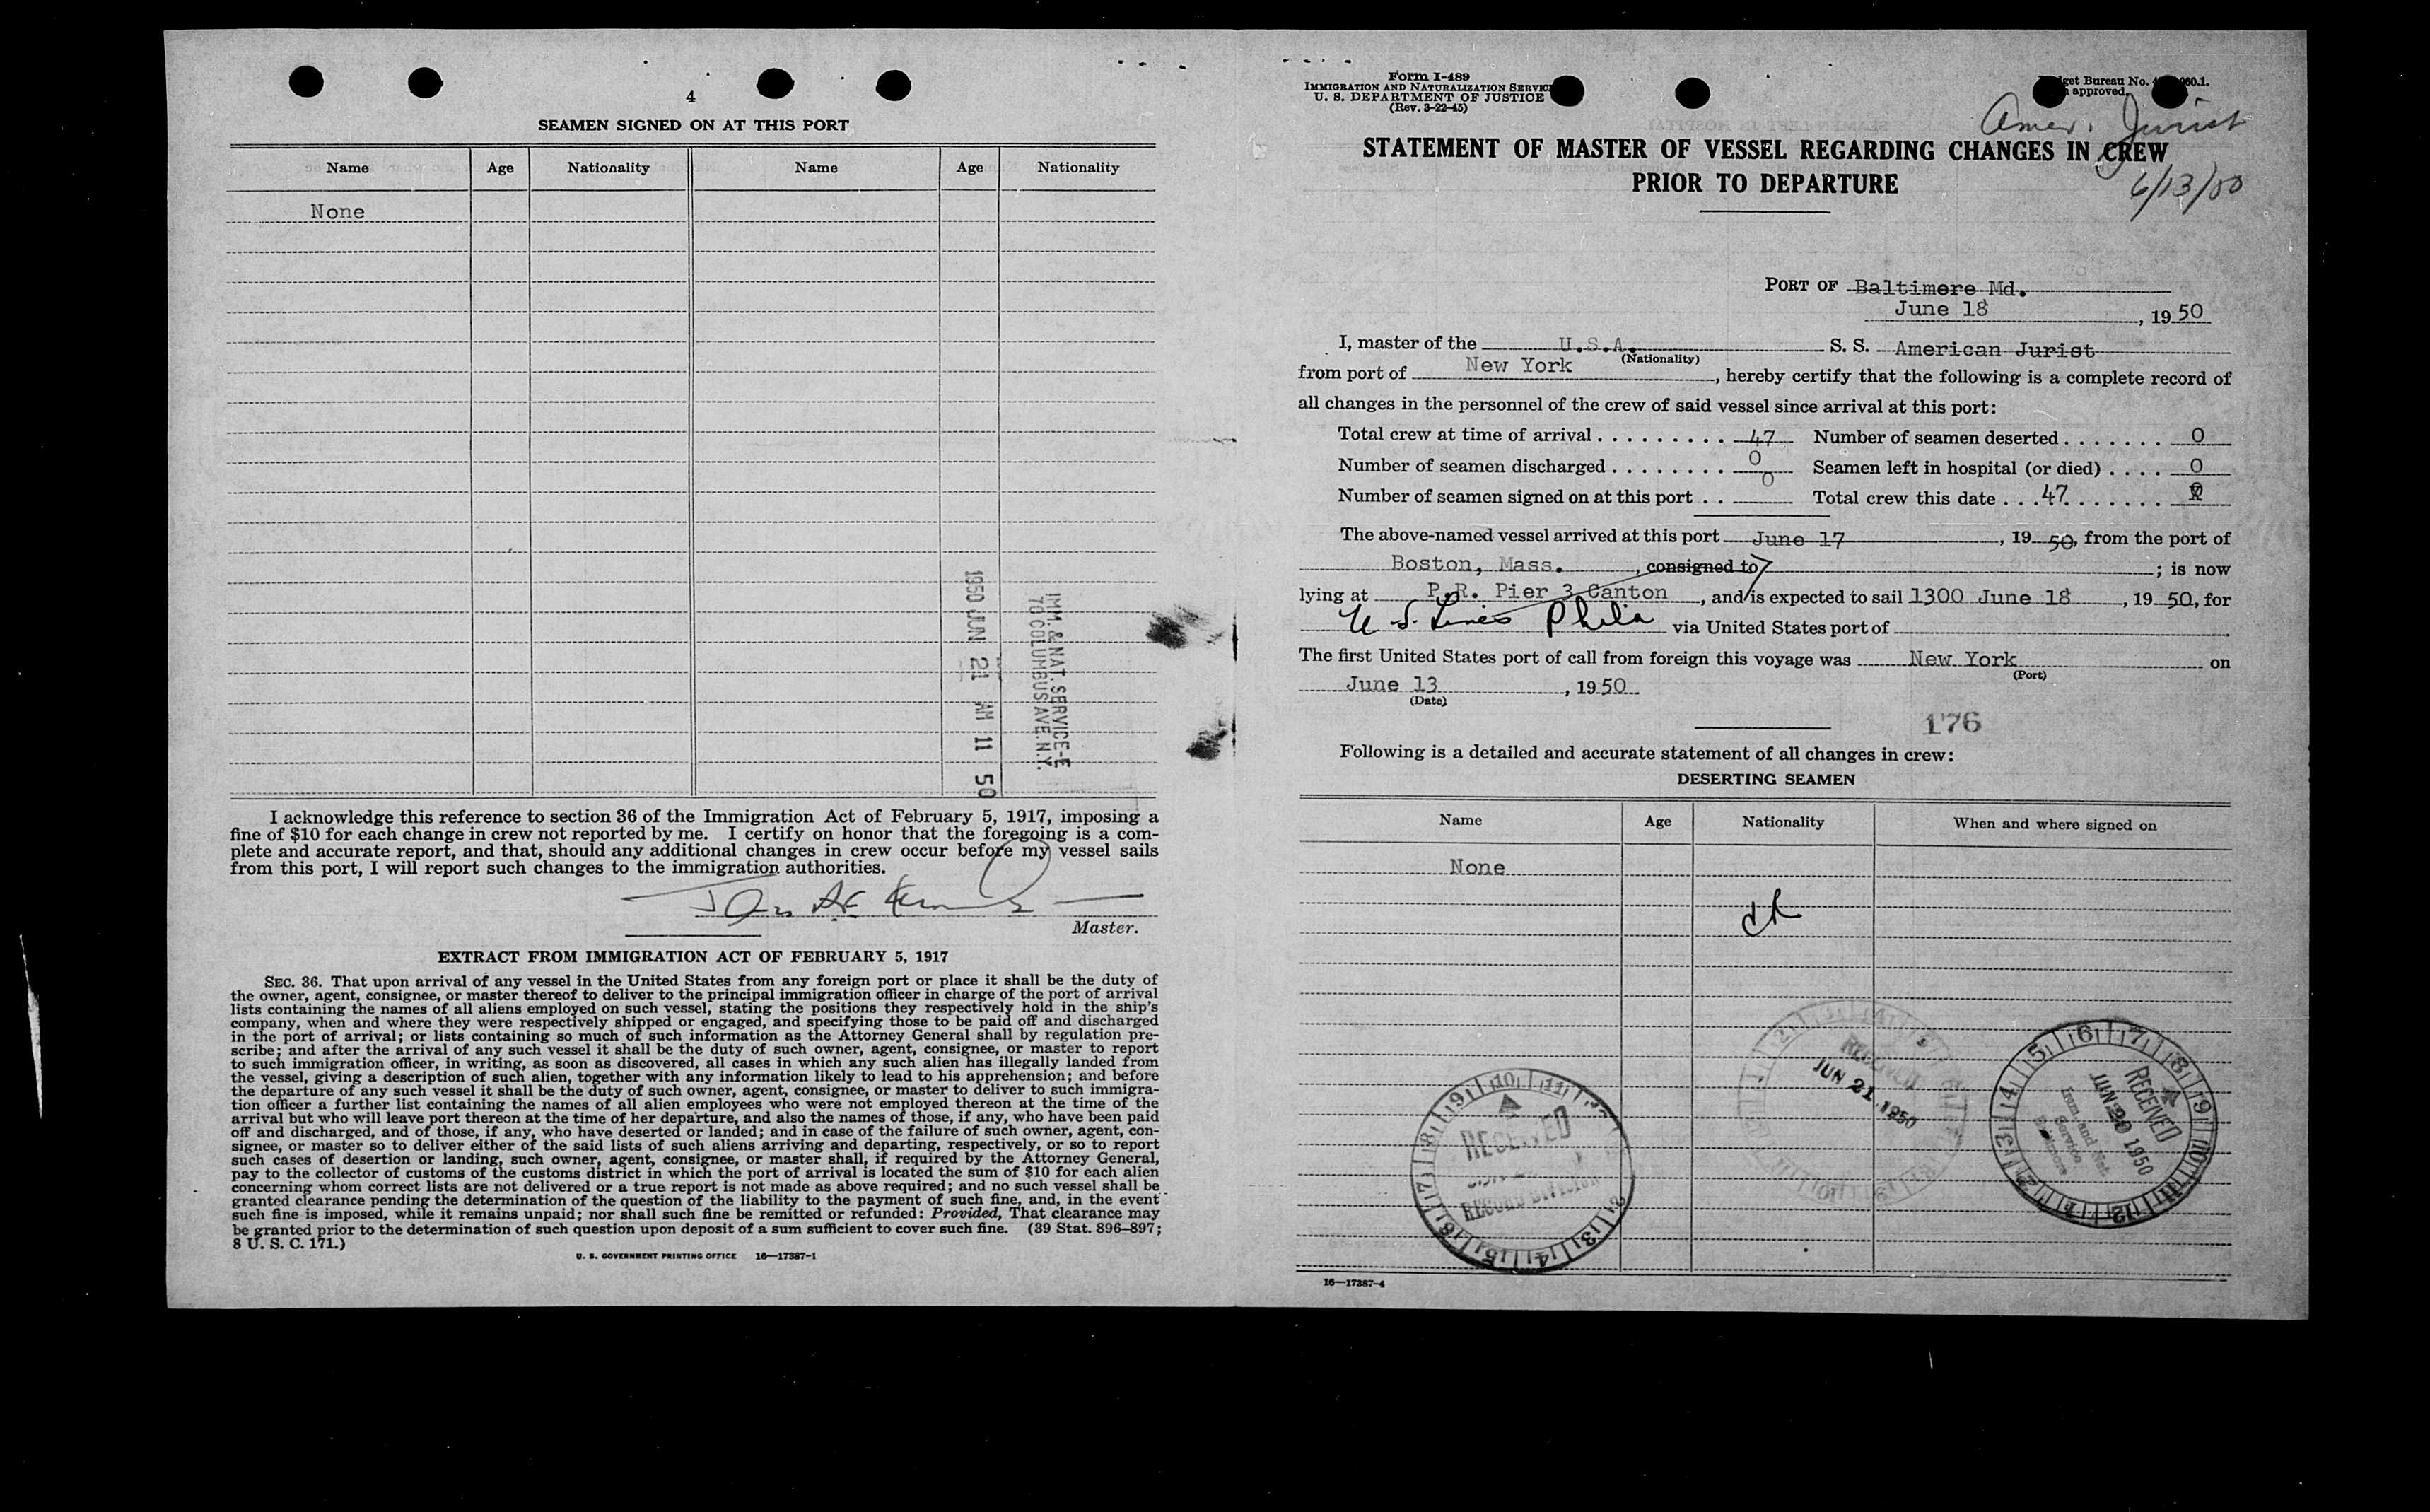 4
SEAMEN SIGNED ON AT THIS PORT
Name Age Nationality Name Age Nationality
None
1950 JUN 21 AM 11 50
IMM. & NAT. SERVICE-E
70 COLUMBUS AVE. N.Y.
I acknowledge this reference to section 36 of the Immigration Act of February 5, 1917, imposing a
fine of $10 for each change in crew not reported by me. I certify on honor that the foregoing is a com-
plete and accurate report, and that, should any additional changes in crew occur before my vessel sails
from this port, I will report such changes to the immigration authorities.
Master.
EXTRACT FROM IMMIGRATION ACT OF FEBRUARY 5, 1917
SEC. 36. That upon arrival of any vessel in the United States from any foreign port or place it shall be the duty of
the owner, agent, consignee, or master thereof to deliver to the principal immigration officer in charge of the port of arrival
lists containing the names of all aliens employed on such vessel, stating the positions they respectively hold in the ship's
company, when and where they were respectively shipped or engaged, and specifying those to be paid off and discharged
in the port of arrival; or lists containing so much of such information as the Attorney General shall by regulation pre-
scribe; and after the arrival of any such vessel it shall be the duty of such owner, agent, consignee, or master to report
to such immigration officer, in writing, as soon as discovered, all cases in which any such alien has illegally landed from
the vessel, giving a description of such alien, together with any information likely to lead to his apprehension; and before
the departure of any such vessel it shall be the duty of such owner, agent, consignee, or master to deliver to such immigra-
tion officer a further list containing the names of all alien employees who were not employed thereon at the time of the
arrival but who will leave port thereon at the time of her departure, and also the names of those, if any, who have been paid
off and discharged, and of those, if any, who have deserted or landed; and in case of the failure of such owner, agent, con-
signee, or master so to deliver either of the said lists of such aliens arriving and departing, respectively, or so to report
such cases of desertion or landing, such owner, agent, consignee, or master shall, if required by the Attorney General,
pay to the collector of customs of the customs district in which the port of arrival is located the sum of $10 for each alien
concerning whom correct lists are not delivered or a true report is not made as above required; and no such vessel shall be
granted clearance pending the determination of the question of the liability to the payment of such fine, and, in the event
such fine is imposed, while it remains unpaid; nor shall such fine be remitted or refunded: Provided, That clearance may
be granted prior to the determination of such question upon deposit of a sum sufficient to cover such fine. (39 Stat. 896-897;
8 U. S. C. 171.)
U. S. GOVERNMENT PRINTING OFFICE 16—17387-1
Form I-489
IMMIGRATION AND NATURALIZATION SERVICE
U. S. DEPARTMENT OF JUSTICE
(Rev. 3-22-45)
Bureau No.
approved.
Amer. Jurist
STATEMENT OF MASTER OF VESSEL REGARDING CHANGES IN CREW
PRIOR TO DEPARTURE
6/13/50
PORT OF Baltimore Md.
June 18, 1950
I, master of the U.S.A. S. S. American Jurist
(Nationality)
from port of New York, hereby certify that the following is a complete record of
all changes in the personnel of the crew of said vessel since arrival at this port:
Total crew at time of arrival . . . . . . . . . 47 Number of seamen deserted . . . . . . . 0
Number of seamen discharged . . . . . . . . 0 Seamen left in hospital (or died) . . . . 0
Number of seamen signed on at this port . . 0 Total crew this date . . . 47 . . . . . . .
The above-named vessel arrived at this port June 17, 1950, from the port of
Boston, Mass., consigned to ; is now
lying at P.R. Pier 3 Canton, and is expected to sail 1300 June 18, 1950, for
U S. Lines Phila via United States port of
The first United States port of call from foreign this voyage was New York on
(Port)
June 13, 1950
(Date)
176
Following is a detailed and accurate statement of all changes in crew:
DESERTING SEAMEN
Name Age Nationality When and where signed on
None
RECEIVED
RECORD DIVISION
RECEIVED
JUN 21 1950
RECEIVED
JUN 20 1950
Imm. and Nat.
Service
16—17387-4